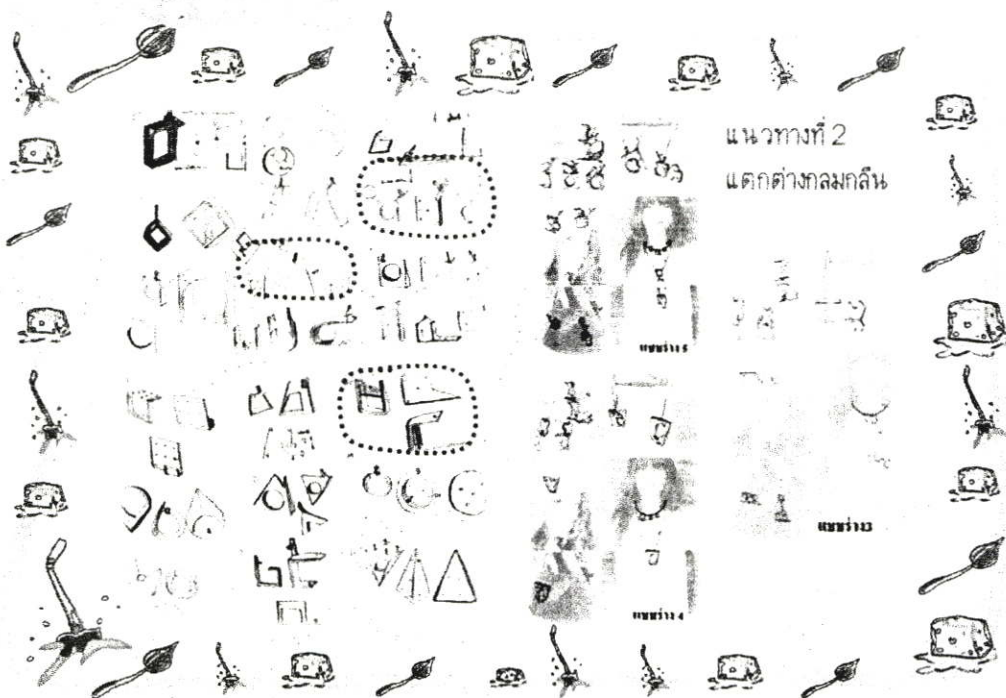 แนวทางที่ 2
แตกต่างกลมกลืน
แบบร่าง 5
แบบร่าง3
แบบร่าง 4